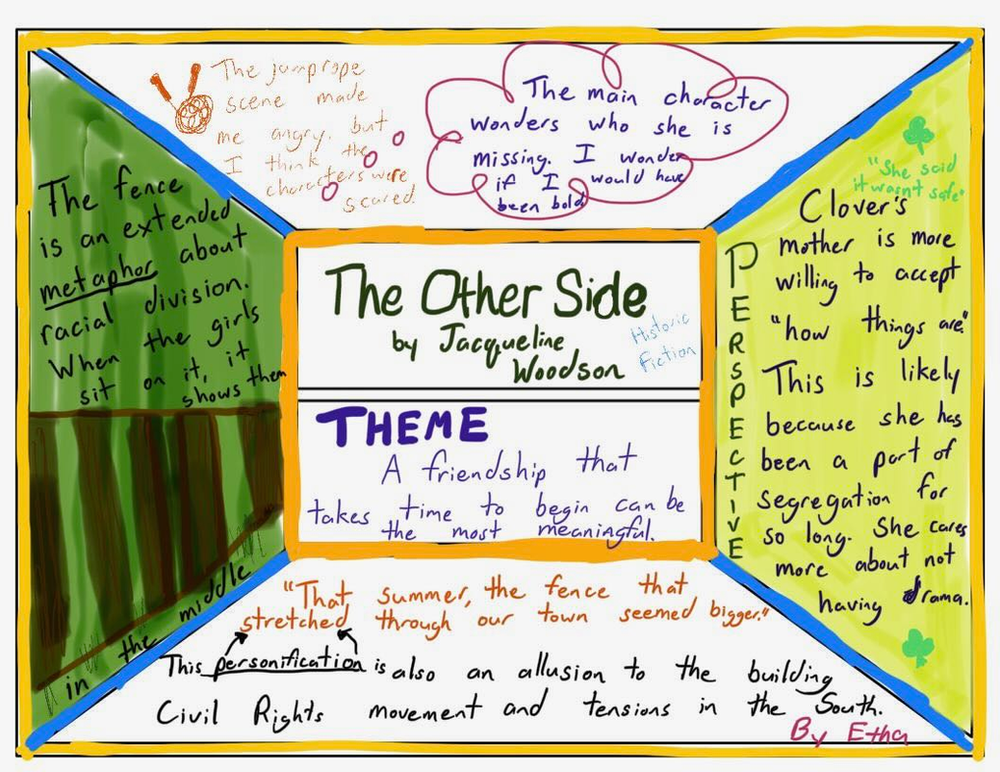 The jumprope
scene made
me angry. but
I think the
characters were
scared.
The main character
wonders who she is
missing. I wonder
if I would have
been bold
The fence
is an extended
metaphor about
racial division.
When the girls
sit on it, it
shows them
in the middle
The Other Side
by Jacqueline
Woodson
Historic
Fiction
THEME
A friendship that
takes time to begin can be
the most meaningful.
PERSPECTIVE
"She said
it wasn't safe"
Clover's
mother is more
willing to accept
"how things are"
This is likely
because she has
been a part of
segregation for
so long. She cares
more about not
having drama.
"That summer, the fence that
stretched through our town seemed bigger."
This personification is also an allusion to the building
Civil Rights movement and tensions in the South.
By Ethan